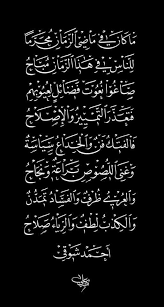 مَا كَانَ فِي مَاضِي الزَّمَانِ مُحَرَّمًا
لِلنَّاسِ فِي هَذَا الزَّمَانِ مُبَاحُ
صَاغُوا نُعُوتَ فَضَائِلٍ لِعُيُوبِهِمْ
فَتَعَذَّرَ التَّمْيِيزُ وَالْإِصْلَاحُ
فَالْفَتْكُ فَنٌّ وَالْخِدَاعُ سِيَاسَةٌ
وَغِنَى اللُّصُوصِ بَرَاعَةٌ وَنَجَاحُ
وَالْعُرْيُ ظُرْفٌ وَالْفَسَادُ تَمَدُّنٌ
وَالْكِذْبُ لُطْفٌ وَالرِّيَاءُ صَلَاحُ
أَحْمَد شَوْقِي